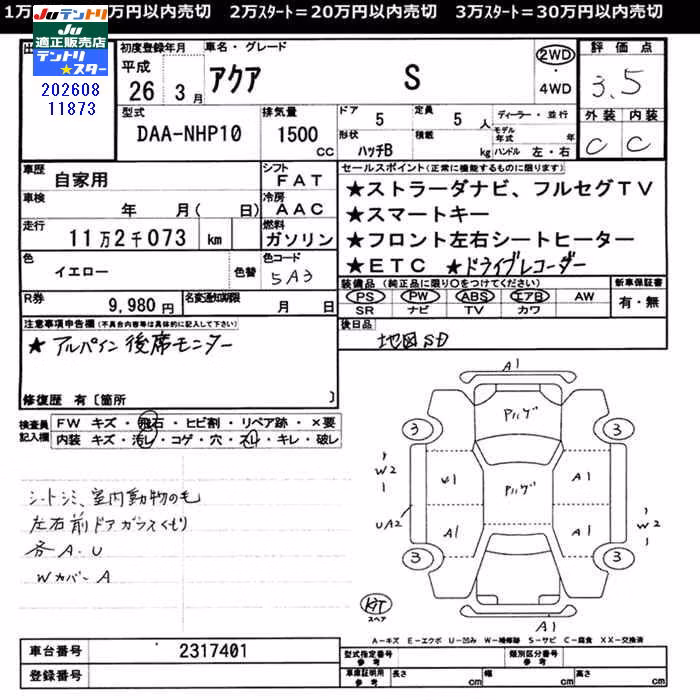 1万 万円以内売切 2万ｽﾀｰﾄ＝20万円以内売切 3万ｽﾀｰﾄ＝30万円以内売切
Juテントリ
Ju
適正販売店
テントリ
★スター
202608
11873
初度登録年月
平成
26 3月
車名・グレード
アクア S
2WD
・
4WD
評価点
3.5
型式
DAA-NHP10
排気量
1500
CC
ドア
5
定員
5人
ディーラー・並行
形状
ハッチB
積載
kg
モデル年式
年
ハンドル 左・右
外装 内装
C C
車歴
自家用
シフト
FAT
車検
年 月( 日)
冷房
AAC
走行
11万2千073 km
燃料
ガソリン
色
イエロー
色替
色コード
5A3
R券
9,980円
名変通知期限
月 日
セールスポイント(正常に機能するものに限ります)
★ストラーダナビ、フルセグTV
★スマートキー
★フロント左右シートヒーター
★ETC ★ドライブレコーダー
装備品(純正品に限り○をつけてください)
PS PW ABS エアB AW
SR ナビ TV カワ
新車保証書
有・無
後日品
地図SD
注意事項申告欄(不具合内容等は具体的に記入して下さい)
★アルパイン後席モニター
修復歴 有〔箇所 〕
検査員
記入欄
FW キズ・飛石・ヒビ割・リペア跡・×要
内装 キズ・汚レ・コゲ・穴・スレ・キレ・破レ
シートシミ、室内動物の毛
左右前ドアガラスくもり
各A.U
WカバーA
A1
アルゲ
3 3
W2
U1
アルゲ
A1
UA2
A1
A1
W2
3 3
KIT
スペア
A1
A-キズ E-エクボ U-凹み W-補修跡 S-サビ C-腐食 XX-交換済
車台番号
2317401
登録番号
型式指定番号
参考
類別区分番号
参考
車庫証明用
参考
長さ cm
幅 cm
高さ cm